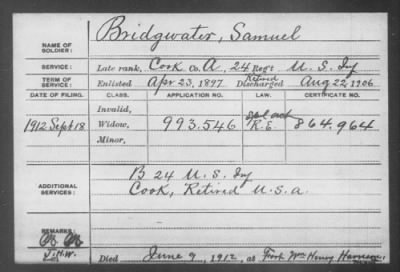 Bridgwater, Samuel
NAME OF SOLDIER:
SERVICE: Late rank, Cook Co. A, 24 Reg't U. S. Inf
TERM OF SERVICE: Enlisted Apr 23, 1897 Retired Discharged Aug 22, 1906
DATE OF FILING. CLASS. APPLICATION NO. LAW. CERTIFICATE NO.
Invalid,
1912 Sept 18 Widow, 993.546 R.E. 864.964
Minor,
ADDITIONAL SERVICES:
B 24 U. S. Inf
Cook, Retired U.S.A.
REMARKS:
J.H.W.
Died June 9, 1912, at Fort Wm Henry Harrison,